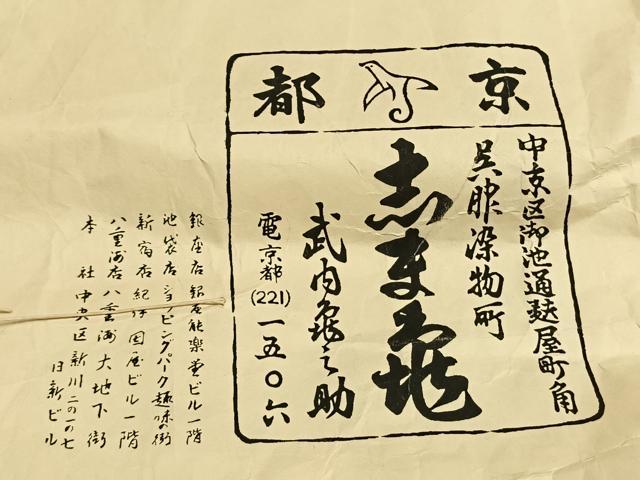 京都
中京区御池通麩屋町角
呉服染物所
志ま亀
武内亀之助
電京都(221)一五〇六
銀座店 銀座能楽堂ビル一階
池袋店 ショッピングパーク趣味の街
新宿店 紀伊国屋ビル一階
八重洲店 八重洲大地下街
本社 中央区新川二の一の七
日新ビル